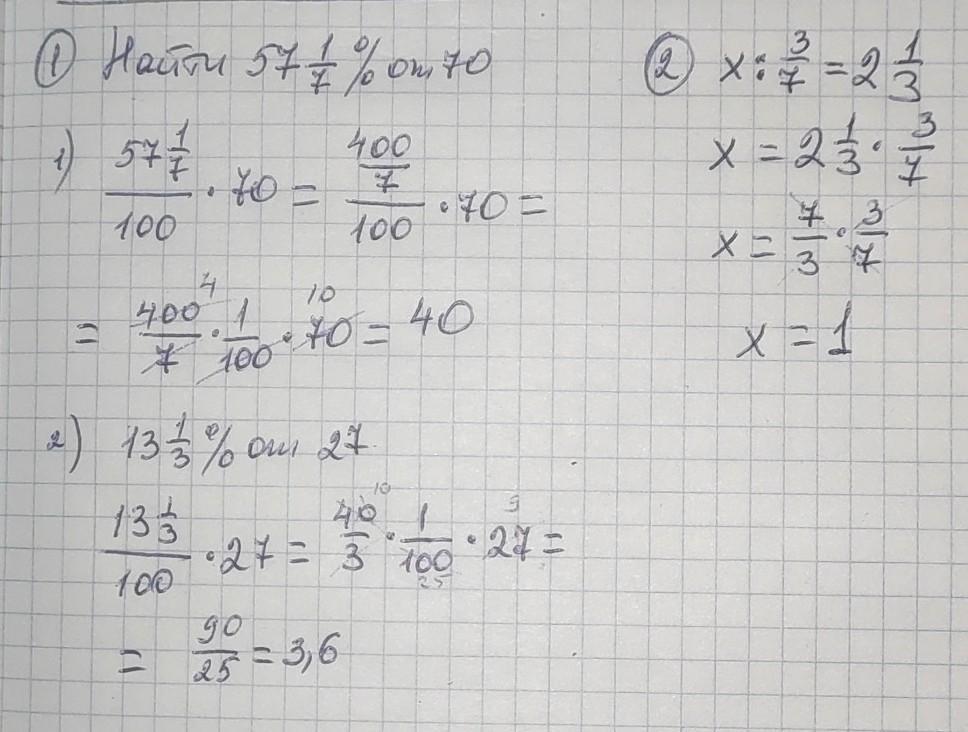 ① Найти 57 1/7 % от 70
1) (57 1/7)/100 · 70 = (400/7)/100 · 70 =
= 400/7 · 1/100 · 70 = 40
4 10
2) 13 1/3 % от 27
(13 1/3)/100 · 27 = 40/3 · 1/100 · 27 =
10 25 9
= 90/25 = 3,6
② x : 3/7 = 2 1/3
x = 2 1/3 · 3/7
x = 7/3 · 3/7
x = 1